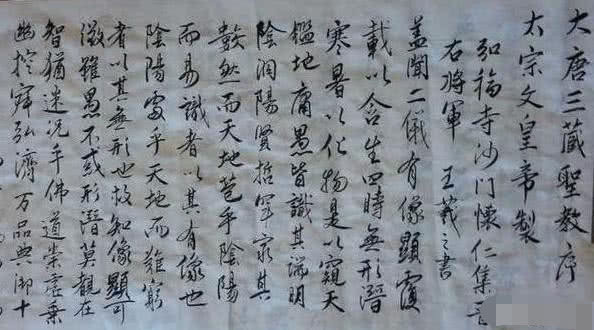 大唐三藏聖教序
太宗文皇帝製
弘福寺沙門懷仁集
右將軍王羲之書
蓋聞二儀有像顯覆
載以含生四時無形潛
寒暑以化物是以窺天
鑑地庸愚皆識其端明
陰洞陽賢哲罕窮其
數然而天地苞乎陰陽
而易識者以其有像也
陰陽處乎天地而難窮
者以其無形也故知像顯可
徵雖愚不惑形潛莫覩在
智猶迷況乎佛道崇虛乗
幽控寂弘濟万品典御十